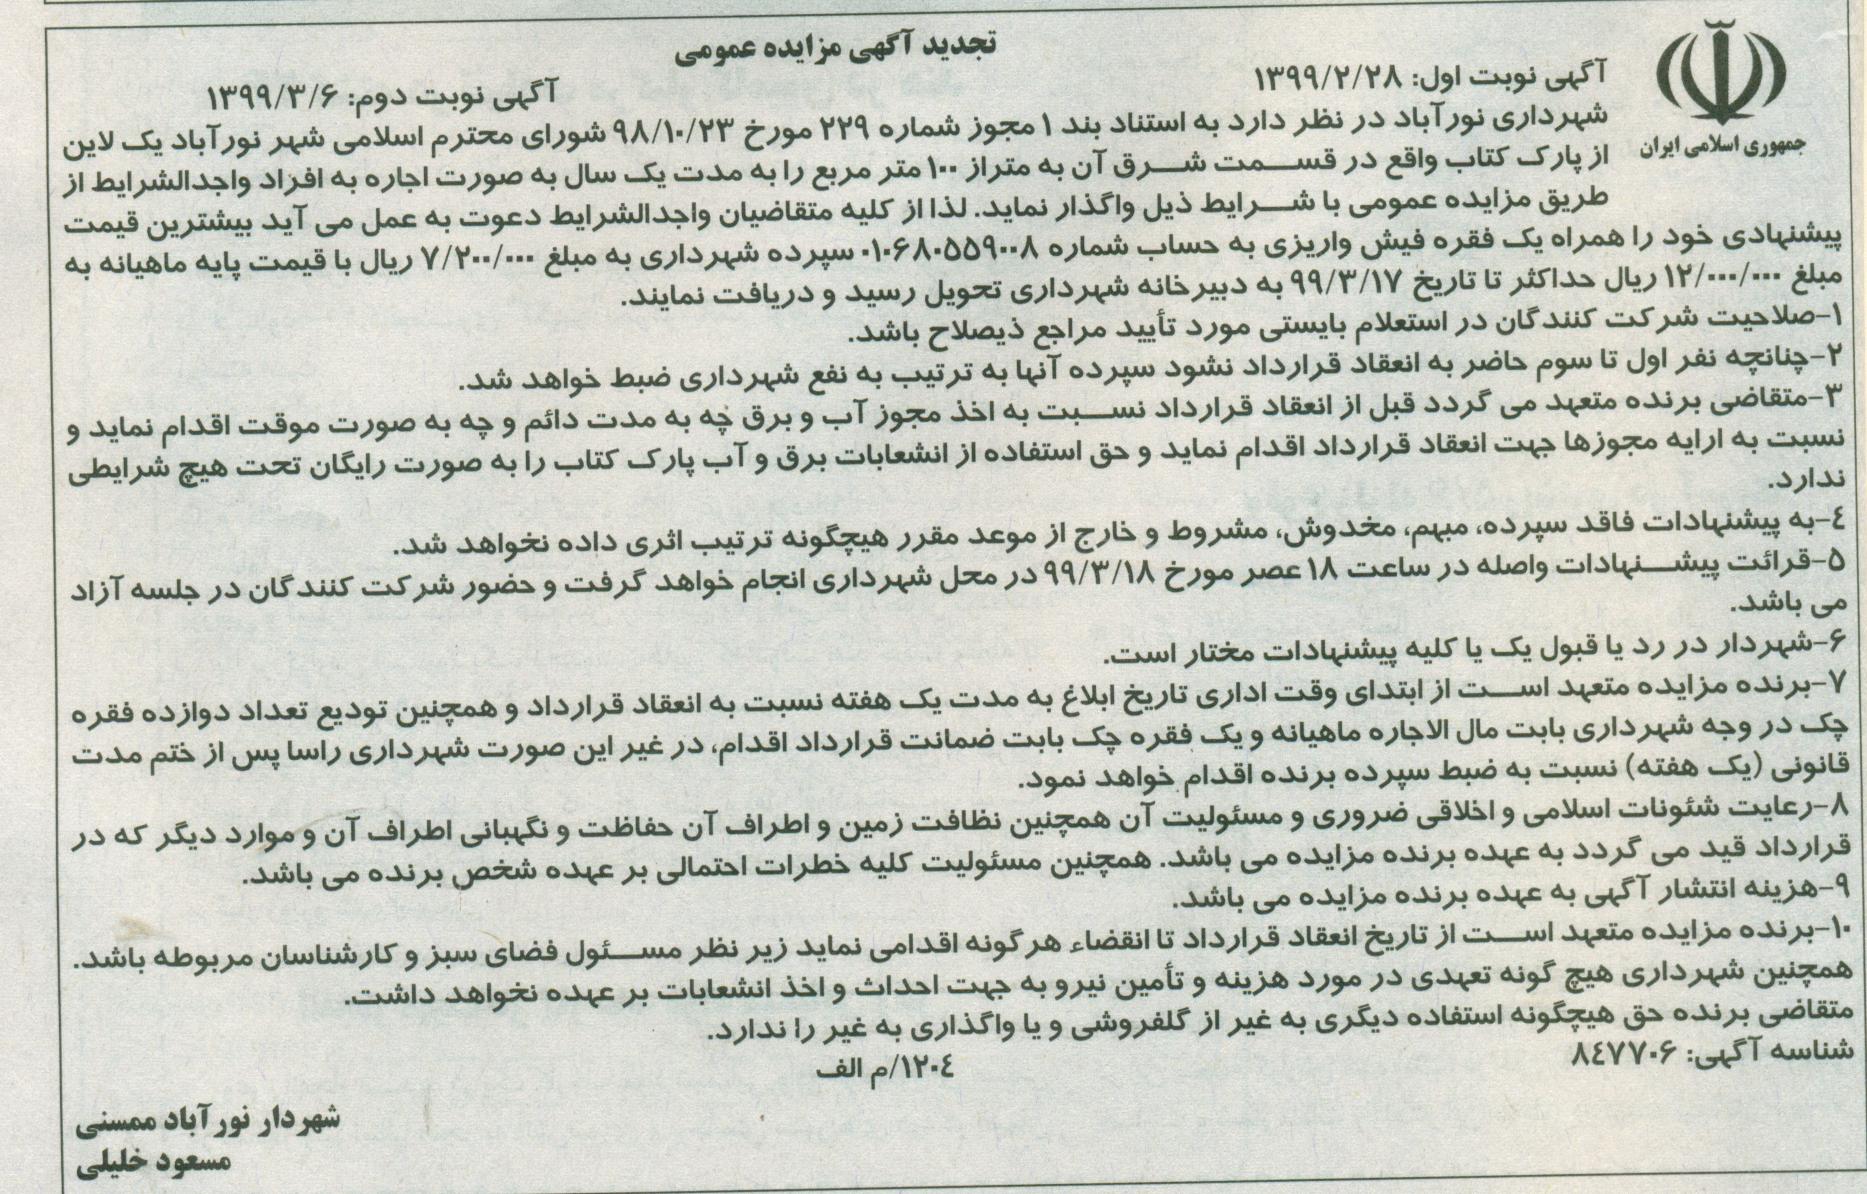 تجدید آگهی مزایده عمومی
جمهوری اسلامی ایران
آگهی نوبت اول: ۱۳۹۹/۲/۲۸
آگهی نوبت دوم: ۱۳۹۹/۳/۶
شهرداری نورآباد در نظر دارد به استناد بند ۱ مجوز شماره ۲۲۹ مورخ ۹۸/۱۰/۲۳ شورای محترم اسلامی شهر نورآباد یک لاین
از پارک کتاب واقع در قسمت شرق آن به متراژ ۱۰۰ متر مربع را به مدت یک سال به صورت اجاره به افراد واجدالشرایط از
طریق مزایده عمومی با شرایط ذیل واگذار نماید. لذا از کلیه متقاضیان واجدالشرایط دعوت به عمل می آید بیشترین قیمت
پیشنهادی خود را همراه یک فقره فیش واریزی به حساب شماره ۰۱۰۶۸۰۵۵۹۰۰۸ سپرده شهرداری به مبلغ ۷/۲۰۰/۰۰۰ ریال با قیمت پایه ماهیانه به
مبلغ ۱۲/۰۰۰/۰۰۰ ریال حداکثر تا تاریخ ۹۹/۳/۱۷ به دبیرخانه شهرداری تحویل رسید و دریافت نمایند.
۱-صلاحیت شرکت کنندگان در استعلام بایستی مورد تأیید مراجع ذیصلاح باشد.
۲-چنانچه نفر اول تا سوم حاضر به انعقاد قرارداد نشود سپرده آنها به ترتیب به نفع شهرداری ضبط خواهد شد.
۳-متقاضی برنده متعهد می گردد قبل از انعقاد قرارداد نسبت به اخذ مجوز آب و برق چه به مدت دائم و چه به صورت موقت اقدام نماید و
نسبت به ارایه مجوزها جهت انعقاد قرارداد اقدام نماید و حق استفاده از انشعابات برق و آب پارک کتاب را به صورت رایگان تحت هیچ شرایطی
ندارد.
۴-به پیشنهادات فاقد سپرده، مبهم، مخدوش، مشروط و خارج از موعد مقرر هیچگونه ترتیب اثری داده نخواهد شد.
۵-قرائت پیشنهادات واصله در ساعت ۱۸ عصر مورخ ۹۹/۳/۱۸ در محل شهرداری انجام خواهد گرفت و حضور شرکت کنندگان در جلسه آزاد
می باشد.
۶-شهردار در رد یا قبول یک یا کلیه پیشنهادات مختار است.
۷-برنده مزایده متعهد است از ابتدای وقت اداری تاریخ ابلاغ به مدت یک هفته نسبت به انعقاد قرارداد و همچنین تودیع تعداد دوازده فقره
چک در وجه شهرداری بابت مال الاجاره ماهیانه و یک فقره چک بابت ضمانت قرارداد اقدام، در غیر این صورت شهرداری راسا پس از ختم مدت
قانونی (یک هفته) نسبت به ضبط سپرده برنده اقدام خواهد نمود.
۸-رعایت شئونات اسلامی و اخلاقی ضروری و مسئولیت آن همچنین نظافت زمین و اطراف آن حفاظت و نگهبانی اطراف آن و موارد دیگر که در
قرارداد قید می گردد به عهده برنده مزایده می باشد. همچنین مسئولیت کلیه خطرات احتمالی بر عهده شخص برنده می باشد.
۹-هزینه انتشار آگهی به عهده برنده مزایده می باشد.
۱۰-برنده مزایده متعهد است از تاریخ انعقاد قرارداد تا انقضاء هرگونه اقدامی نماید زیر نظر مسئول فضای سبز و کارشناسان مربوطه باشد.
همچنین شهرداری هیچ گونه تعهدی در مورد هزینه و تأمین نیرو به جهت احداث و اخذ انشعابات بر عهده نخواهد داشت.
متقاضی برنده حق هیچگونه استفاده دیگری به غیر از گلفروشی و یا واگذاری به غیر را ندارد.
شناسه آگهی: ۸۴۷۷۰۶
۱۲۰۴/م الف
شهردار نورآباد ممسنی
مسعود خلیلی